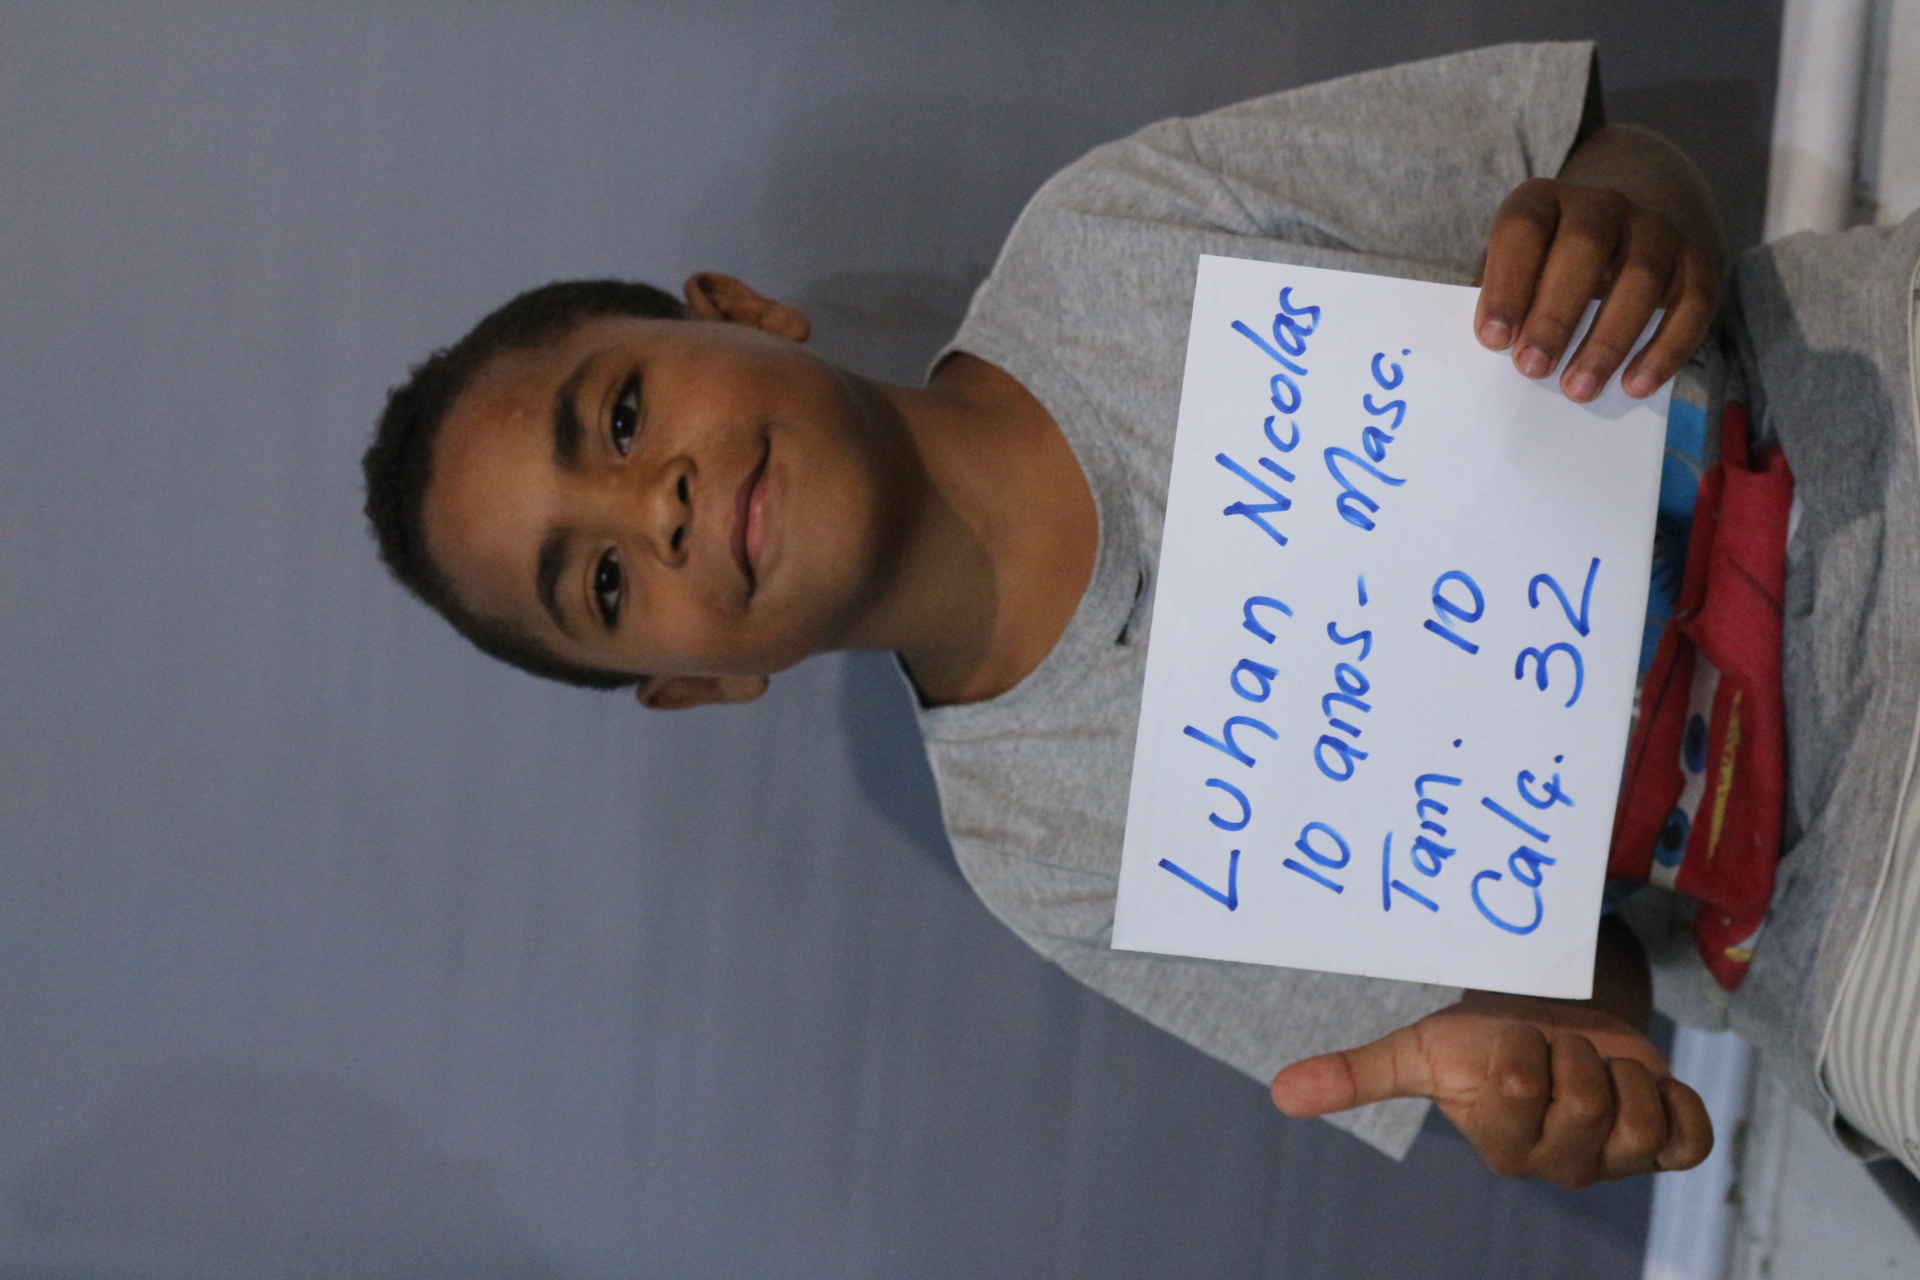 Luhan Nicolas
10 anos - Masc.
Tam. 10
Calç. 32